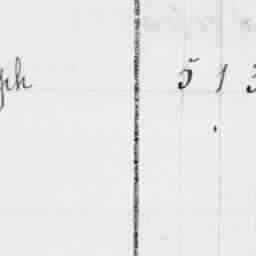 ph 5 1 3